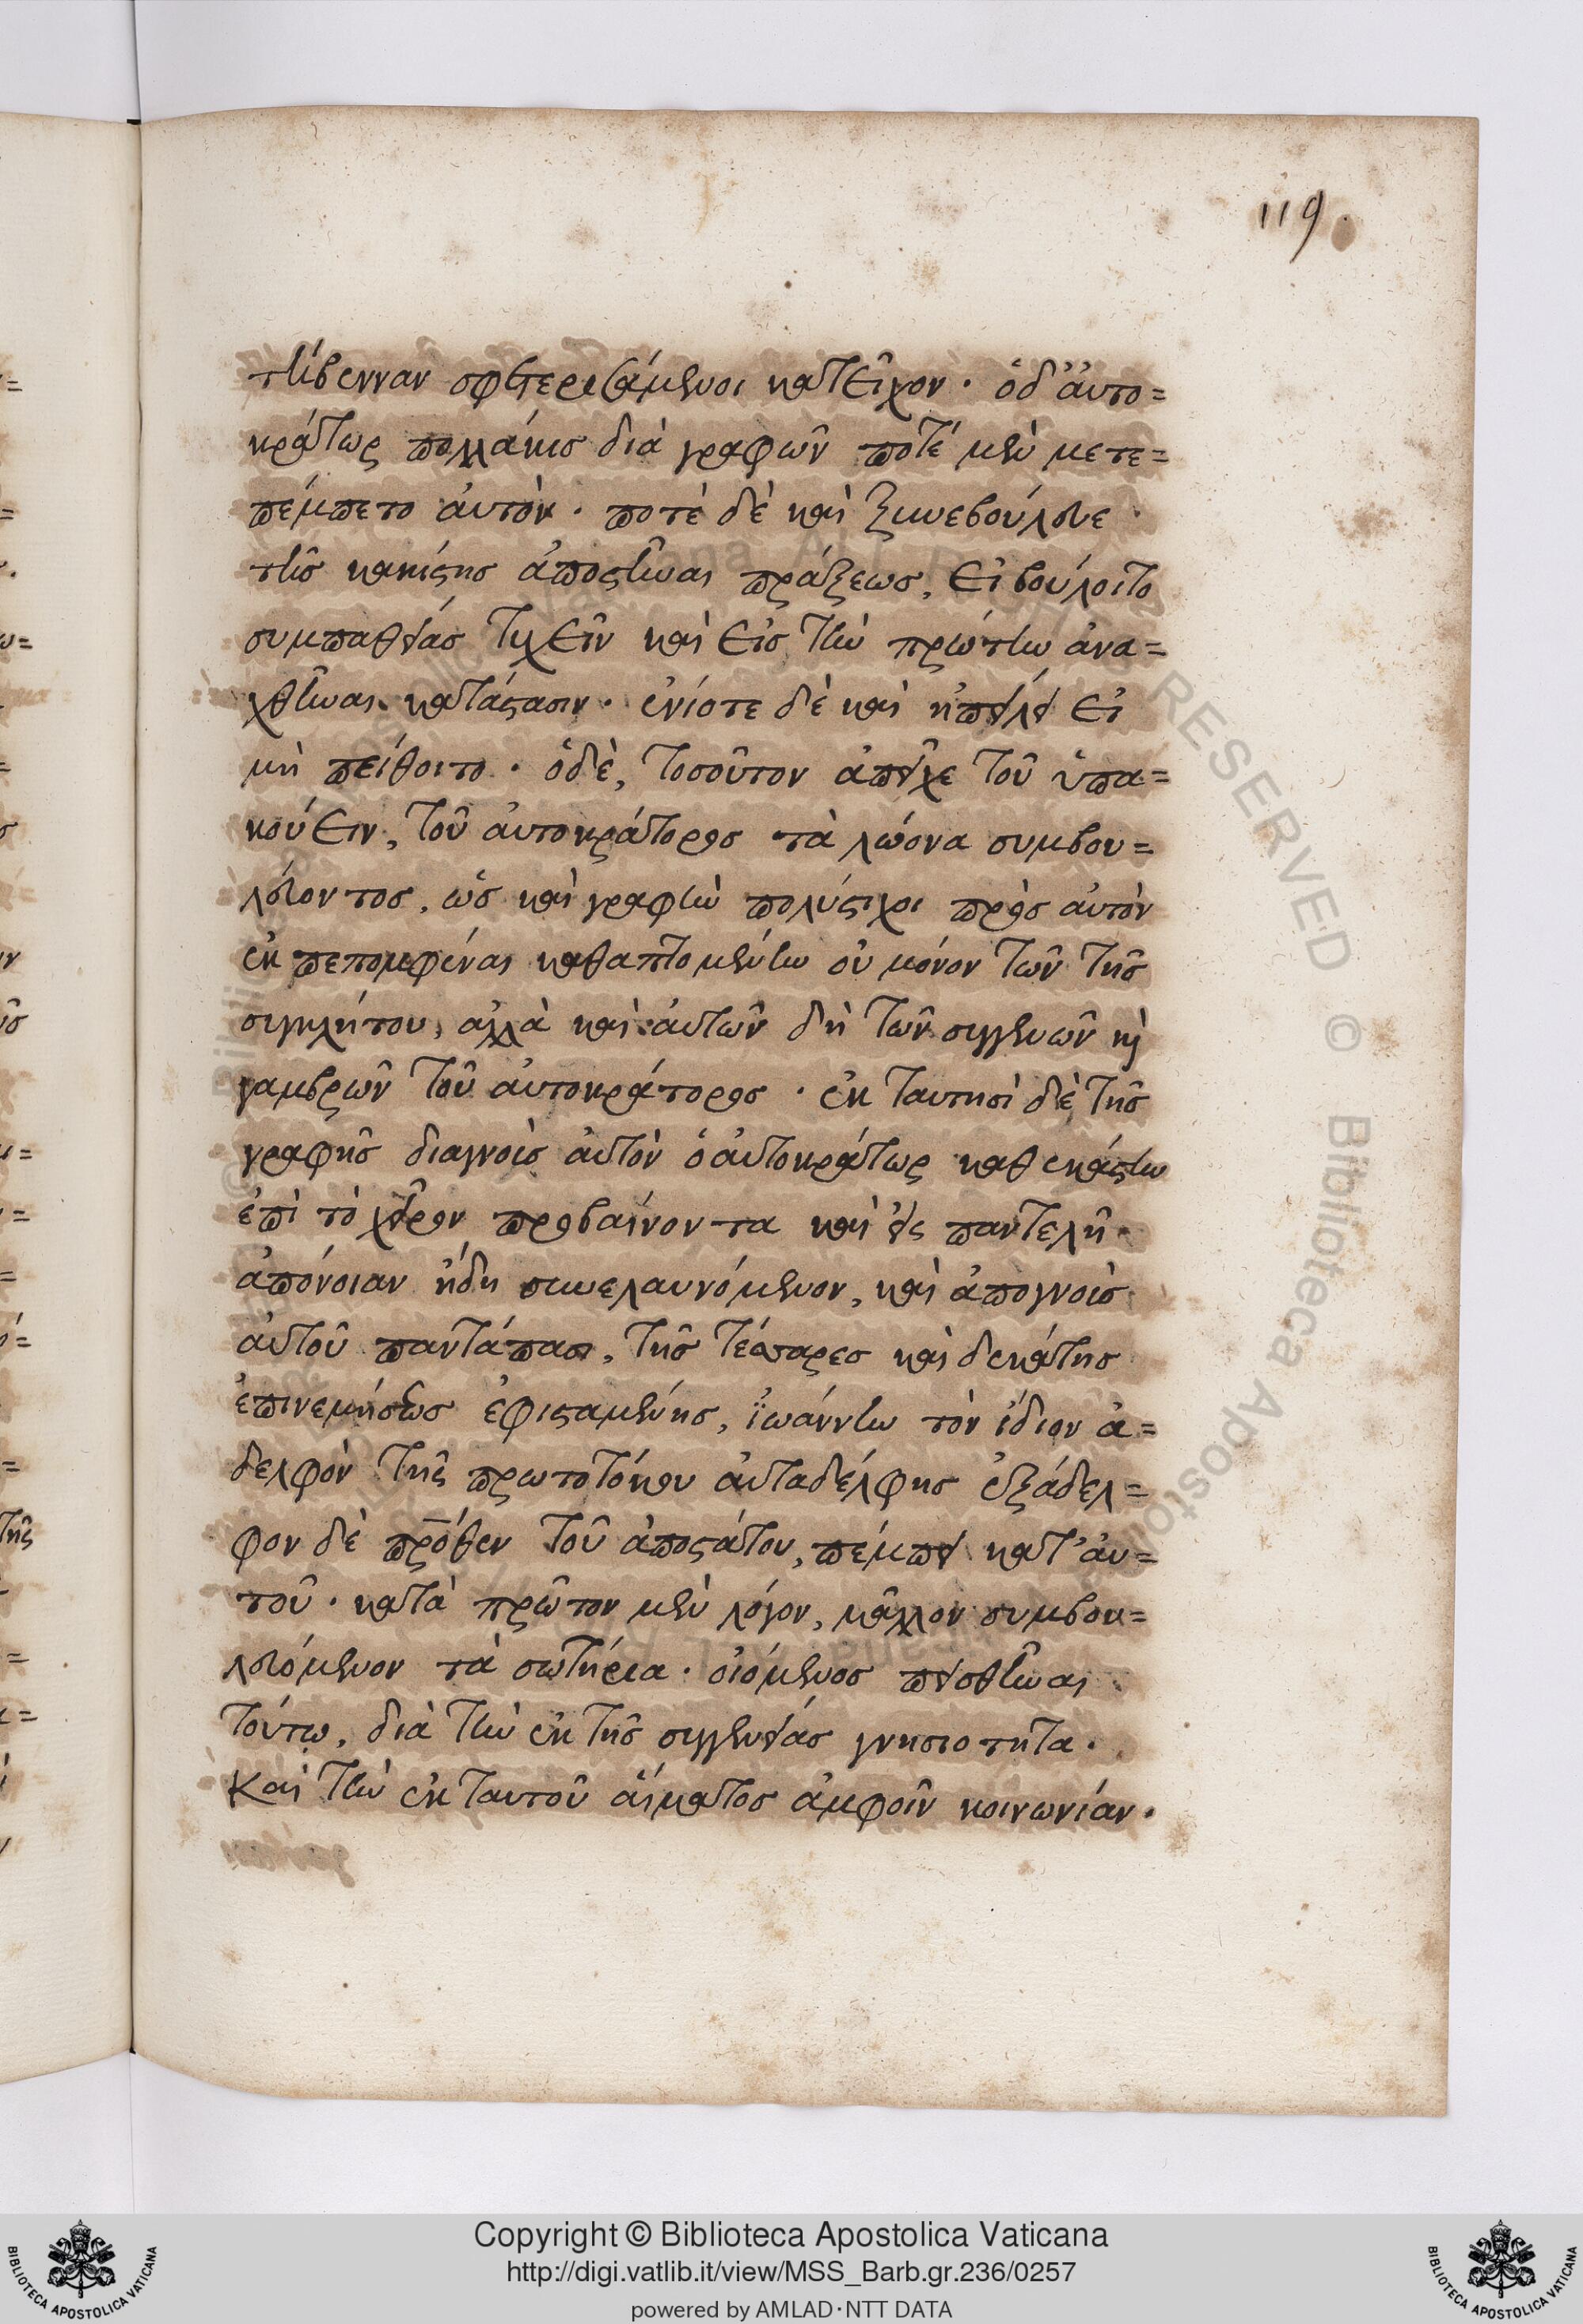 119.
τήβενναν σφετερισάμενοι κατεῖχον· ὁδ' ἀυτο=
κράτωρ πολλάκις διὰ γραφῶν ποτέ μὲν μετε=
πέμπετο ἀυτὸν· ποτὲ δὲ καὶ ξυνεβούλευε
τῆς κακίστης ἀποστῆναι πράξεως, εἰ βούλοιτο
συμπαθείας τυχεῖν καὶ εἰς τὴν πρώτην ἀνα=
χθῆναι κατάστασιν· ἐνίοτε δὲ καὶ ἠπείλει εἰ
μὴ πείθοιτο· ὁδὲ, τοσοῦτον ἀπεῖχε τοῦ ὑπα=
κούειν, τοῦ ἀυτοκράτορος τὰ λώονα συμβου=
λεύοντος, ὡς καὶ γραφὴν πολύστιχον πρὸς ἀυτὸν
ἐκπεπομφέναι καθαπτομένην οὐ μόνον τῶν τῆς
συγκλήτου, ἀλλὰ καὶ ἀυτῶν δὴ τῶν συγγενῶν κὶ
γαμβρῶν τοῦ ἀυτοκράτορος· ἐκ ταυτησὶ δὲ τῆς
γραφῆς διαγνοὺς ἀυτὸν ὁ ἀυτοκράτωρ καθεκάστην
ἐπὶ τὸ χεῖρον προβαίνοντα καὶ εἰς παντελῆ
ἀπόνοιαν ἤδη συνελαυνόμενον, καὶ ἀπογνοὺς
ἀυτοῦ παντάπασι, τῆς τέσσαρες καὶ δεκάτης
ἐπινεμήσεως ἐφισταμένης, ἰωάννην τὸν ἴδιον ἀ=
δελφὸν τῆς πρωτοτόκου ἀυταδέλφης ἐξάδελ=
φον δὲ πρόθεν τοῦ ἀποστάτου, πέμπει κατ' ἀυ=
τοῦ· κατὰ πρῶτον μὲν λόγον, μᾶλλον συμβου=
λευόμενον τὰ σωτήρια· οἰόμενος πεισθῆναι
τούτω, διὰ τὴν ἐκ τῆς συγγενείας γνησιοτητα·
Καὶ τὴν ἐκ ταυτοῦ ἅιματος ἀμφοῖν κοινωνίαν·
Copyright © Biblioteca Apostolica Vaticana
http://digi.vatlib.it/view/MSS_Barb.gr.236/0257
powered by AMLAD·NTT DATA